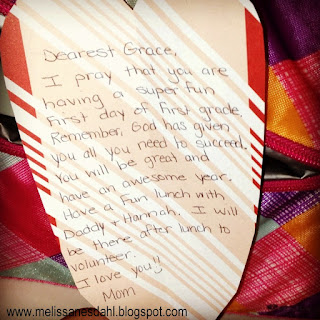 Dearest Grace,
I pray that you are
having a super fun
first day of first grade.
Remember, God has given
you all you need to succeed.
You will be great and
have an awesome year.
Have a fun lunch with
Daddy + Hannah. I will
be there after lunch to
volunteer.
I love you!!
Mom
www.melissanesdahl.blogspot.com